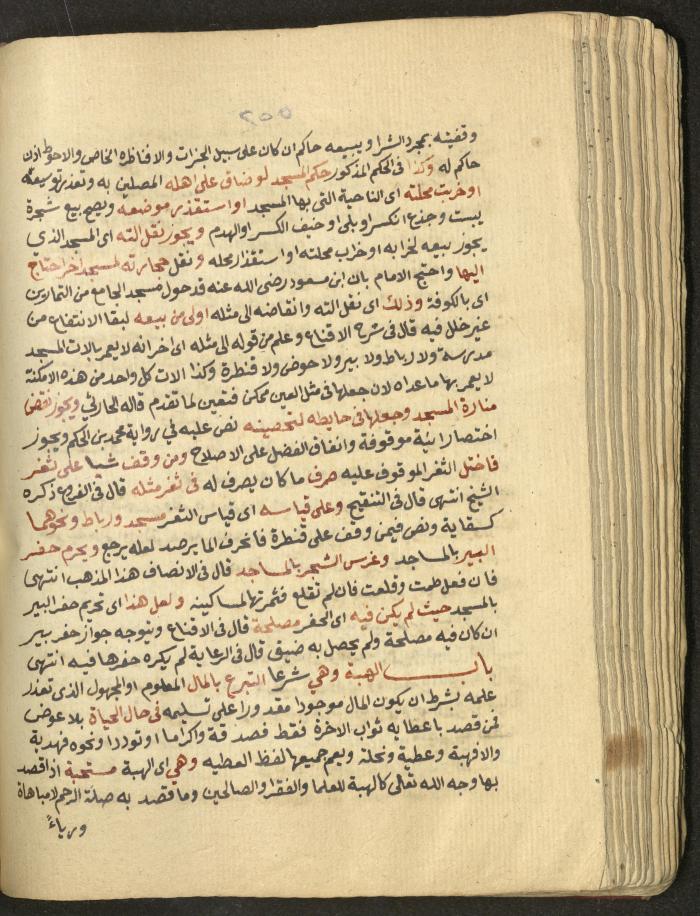 ٢٥٥
وقفيته بمجرد الشرا ويبيعه حاكم ان كان على سبيل الخيرات والا فناظره الخاص والاحوط اذن
حاكم له وكذا في الحكم المذكور حكم المسجد لو ضاق على اهله المصلين به وتعذر توسيعه
او خربت محلته اي الناحية التي بها المسجد او استقذر موضعه ويصح بيع شجرة
يبست وجذع انكسر او بلي او خيف الكسر او الهدم ويجوز نقل الته اي المسجد الذي
يجوز بيعه لخرابه او خراب محلته او استقذار محله ونقل حجارته لمسجد اخر احتاج
اليها واحتج الامام بان ابن مسعود رضي الله عنه قد حول مسجد الجامع من التمارين
اي بالكوفة وذلك اي نقل الته وانقاضه الى مثله اولى من بيعه لبقا الانتفاع من
غير خلل فيه قال في شرح الاقناع وعلم من قوله الى مثله اي اخر انه لا يعمر بالات المسجد
مدرسة ولا رباط ولا بير ولا حوض ولا قنطرة وكذا الات كل واحد من هذه الامكنة
لا يعمر بها ما عداه لان جعلها في مثل العين ممكن فتعين لما تقدم قاله الحارثي ويجوز نقض
منارة المسجد وجعلها في حايطه لتحصينه نص عليه في رواية محمد بن الحكم ويجوز
اختصار انية موقوفة وانفاق الفضل على الاصلاح ومن وقف شيا على ثغر
فاختل الثغر الموقوف عليه صرف ما كان يصرف له في ثغر مثله قال في الفروع ذكره
الشيخ انتهى قال في التنقيح وعلى قياسه اي قياس الثغر مسجد ورباط ونحوهما
كسقاية ونص فيمن وقف على قنطرة فانحرف الما يرصد لعله يرجع ويحرم حفر
البير بالمساجد وغرس الشجر بالمساجد قال في الانصاف هذا المذهب انتهى
فان فعل طمت وقلعت فان لم تقلع فثمرتها لمساكينه ولعل هذا اي تحريم حفر البير
بالمسجد حيث لم يكن فيه اي الحفر مصلحة قال في الاقناع ويتوجه جواز حفر بير
ان كان فيه مصلحة ولم يحصل به ضيق قال في الرعاية لم يكره حفرها فيه انتهى
باب الهبة وهي شرعا التبرع بالمال المعلوم او المجهول الذي تعذر
علمه بشرط ان يكون المال موجودا مقدورا على تسليمه في حال الحياة بلا عوض
فمن قصد باعطايه ثواب الاخرة فقط فصدقة واكراما او توددا ونحوه فهدية
والا فهبة وعطية ونحلة ويعم جميعها لفظ العطيه وهي اي الهبة مستحبة اذا قصد
بها وجه الله تعالى كالهبة للعلما والفقرا والصالحين وما قصد به صلة الرحم لا مباهاة
ورياءً